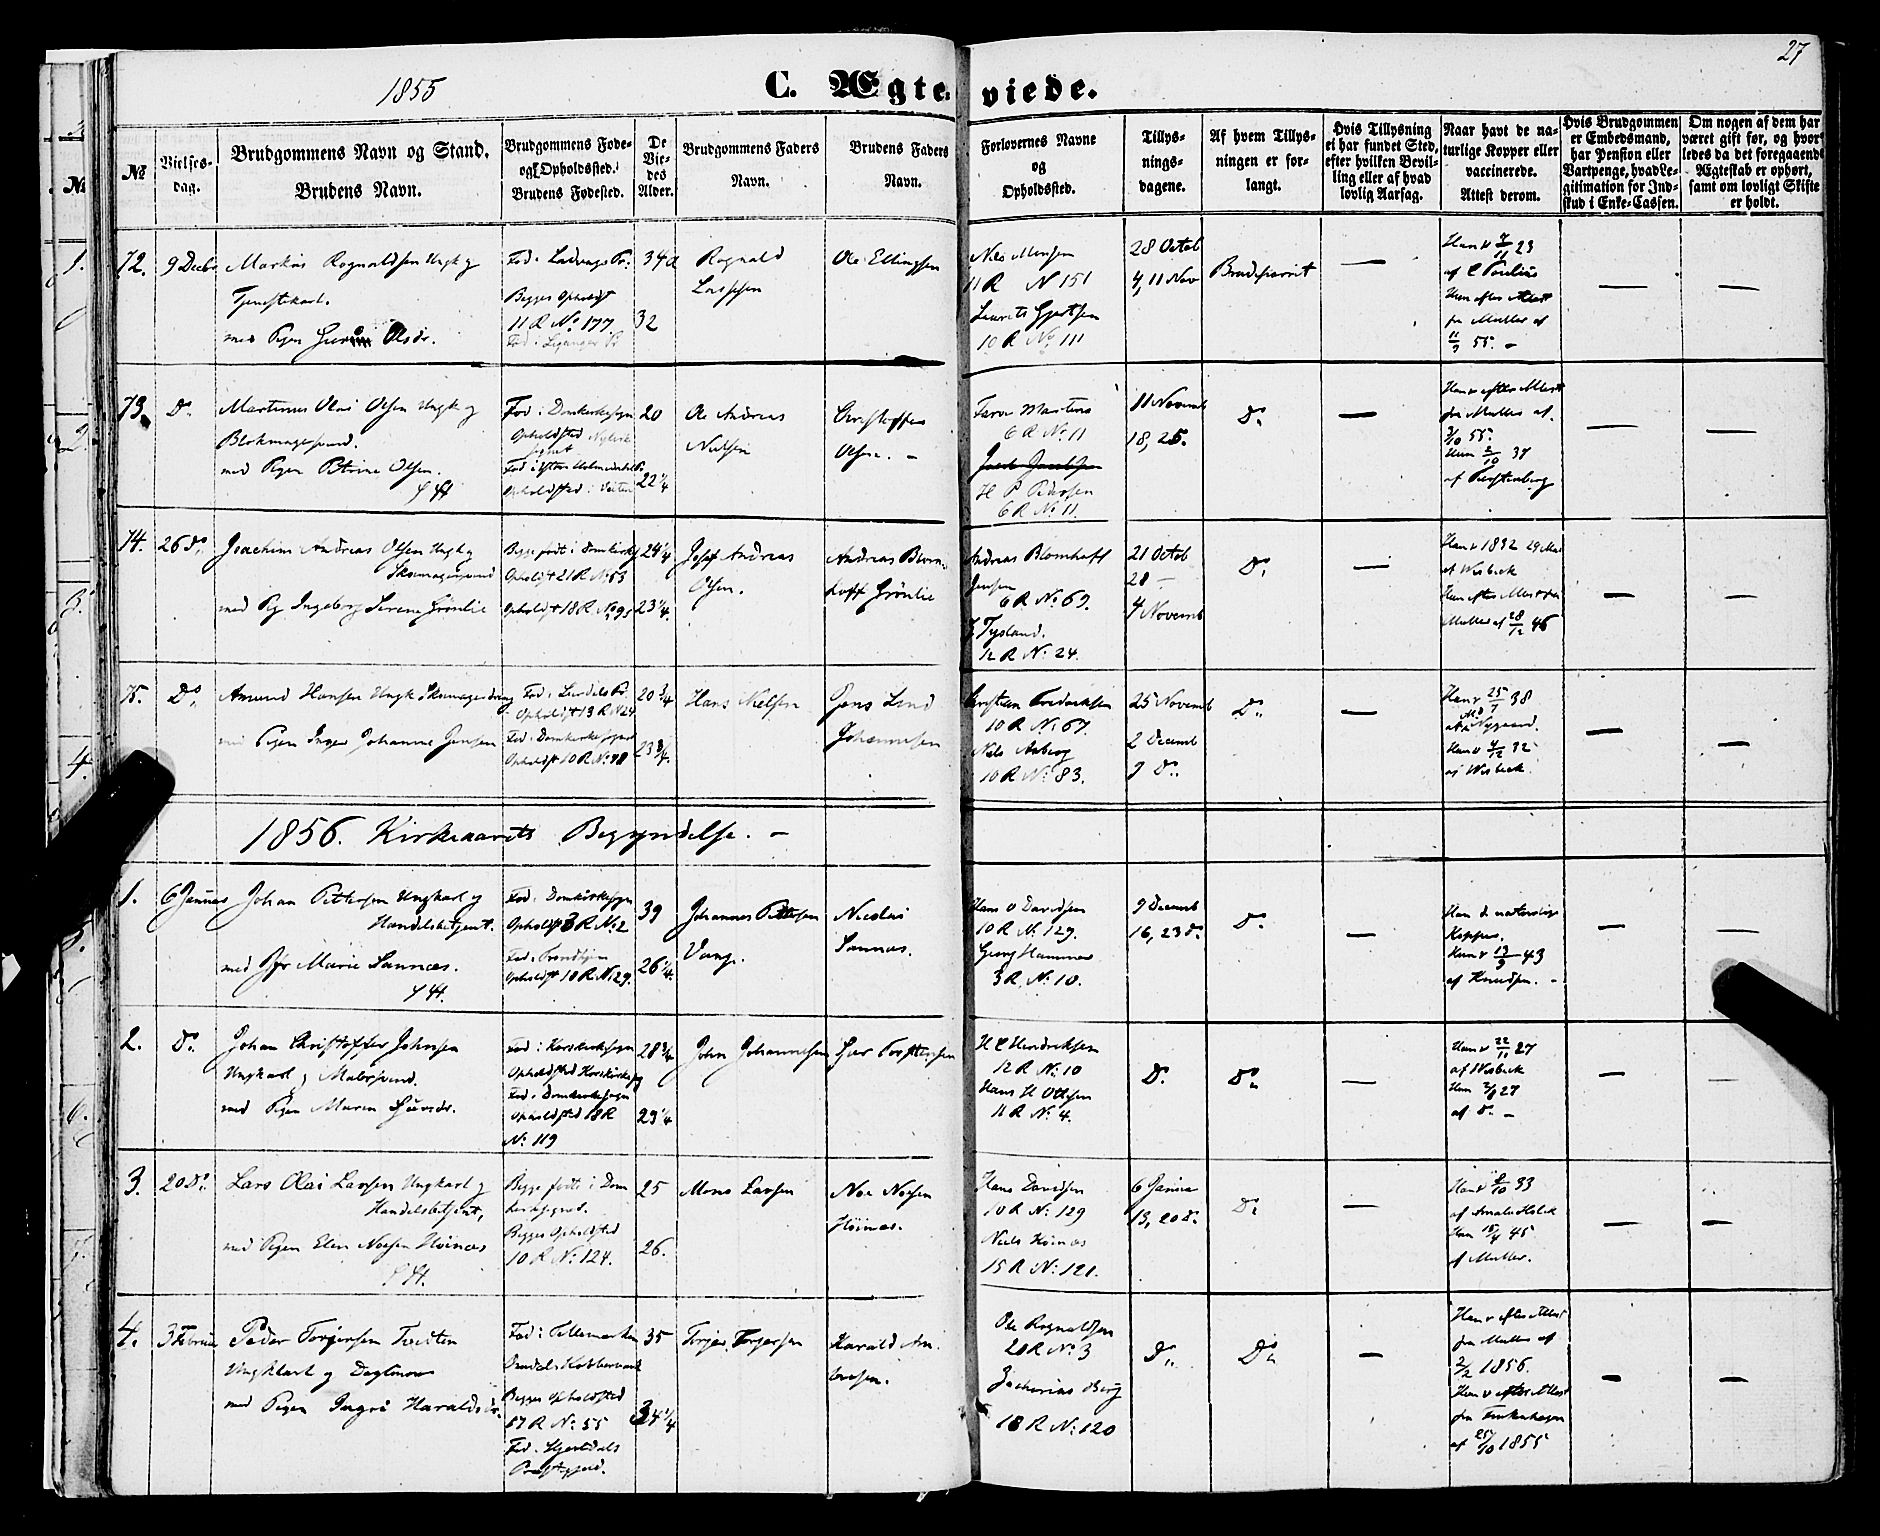 27
1855
C. Ægte viede.
№
Vielses-
dag.
Brudgommens Navn og Stand.
Brudens Navn.
Brudgommens Føde-
og Opholdssted.
Brudens Fødested.
De
Vie-
des
Alder.
Brudgommens Faders
Navn.
Brudens Faders
Navn.
Forlovernes Navne
og
Opholdssted.
Tillys-
nings-
dagene.
Af hvem Tillys-
ningen er for-
langt.
Hvis Tillysning
ei har fundet Sted,
efter hvilken Bevil-
ling eller af hvad
lovlig Aarsag.
Naar havt de na-
turlige Kopper eller
vaccinerede.
Attest derom.
Hvis Brudgommen
er Embedsmand,
har Pension eller
Vartpenge, hvad Le-
gitimation for Ind-
skud i Enke-Cassen.
Om nogen af dem har
været gift før, og hvor-
ledes da det foregaaende
Ægteskab er ophørt,
samt om lovligt Skifte
er holdt.
72.
9 Decbr
Markus Rognaldsen Ungk og
Tjenestekarl.
med Pigen Guri Olsdr.
Begges Opholdst
11 R No 177
34
32
Rognald
Lassesen
Ole Ellingsen
Nils Monsen
11 R N 151
Laurits Gjertsen
10 R No 111
28 Octob
4, 11 Nov
Brudeparret
—
Han v 7/11 23
Hun efter Attest
fra Muller af
11/9 55. —
—
—
73.
Do
Martinus Olai Olsen Ungk og
Blokmagersvend.
med Pigen Petrine Olsen.
Fød i Domkirkesogn
Opholdsted
20
22 1/4
Ole Andreas
Nielsen
Christoffer
Olsen. —
Martens
6 R No 11
H P Pedersen
6 R No 11.
11 Novemb
18, 25.
Do
—
Han v efter Attest
fra Muller af
3/10 55.
Hun 2/10 37
—
—
74.
26 Do
Joachim Andreas Olsen Ungk og
Skomagersvend
med Pg Ingeborg Serene Grønlie
Begge født i Domkirkes
Opholdst 21 R No 53
Opholdst 18 R No 95
24 1/4
23 1/4.
Andreas
Olsen.
Andreas Blom-
hoff Grønlie
Andreas Blomhoff
Jensen
6 R No 69.
J Tysland.
12 R No 24.
21 Octob
28 —
4 Novemb
Do
—
Han v 1832 29 Mai
af Wisbeck
Hun efter Attest fra
Muller af 28/12 46
—
—
75.
Do
Amund Hansen Ungk Skomagersvend
med Pigen Inger Johanne Jensen
Opholdst 13 R No 24
Fød i Domkirkesogne
Opholdst 10 R No 98
20 3/4
23 3/4.
Hans Nielsen
Jens Lind
Johannesen
Christian Fredriksen
10 R No 67.
Nils Aaberg
10 R No 83.
25 Novemb
2 Decemb
9 Do
Do
—
Han v 25/7 38
Nygaard.
Hun v 4/12 32
af Wisbeck.
—
—
1856. Kirkeaarets Begyndelse. —
1.
6 Januar
Johan Pettersen Ungkarl og
Handelsbetjent.
med Jfr Marie Sannæs.
Fød i Domkirkesogn
Opholdst 3 R No 2
Fød i Trondhjem
Opholdst 10 R No 29.
39
26 1/4.
Johannes Pettersen
Vang.
Nicolai
Sannæs.
Hans v Davidsen
10 R No 129.
Georg Hammer
3 R. No 10.
9 Decemb
16, 23 d.
Do
—
Han d naturlige
Kopper.
Hun v 13/9 43
af Knudsen. —
—
—
2.
Do
Johan Christoffer Johnsen
Ungkarl og Malersvend.
med Pigen Maren Iversdr.
Fød i Korskirkesogn
Opholdsted Korskirkesog
Fød i Domkirkesogn
Opholdsted 18 R
No 119
28 3/4
29 1/4
John Johannesen
Iver Torstensen
H C Hendriksen
12 R No 10
Hans H Olsen
11 R No 4.
Do
Do
—
Han v 22/11 27
af Wisbeck
Hun 27
af d. —
—
—
3.
20 Do
Lars Olai Larsen Ungkarl og
Handelsbetjent,
med Pigen Elen Noesen Høinæs
Begge født i Dom
kirkesognet.
Begges Opholdsted
10 R No 124.
25
26.
Mons Larsen
Noe Noesen
Høinæs.
Hans Davidsen
10 R No 129
Niels Høinæs
15 R No 121.
6 Januar
13, 20 d.
Do
—
Han v 33
Hun 15/4 45
af Muller.
—
—
4.
3 Februar
Peder Torjersen Tveiten
Ungkarl og Daglønner
med Pigen Ingri Haraldsdr.
Fød i Tellemarken
Begges Opholdsted
17 R No 55
Fød i Hjertdals
Præstegjeld.
35
34 1/4
Torjer Torjersen
Harald
Ole Rognaldsen
20 R No 3
Zacharias Berg
18 R No 120
Do
Do
—
Han v efter Attest
fra Muller af
2/2 1856.
Hun v efter Attest
fra
af 25/10 1855
—
—